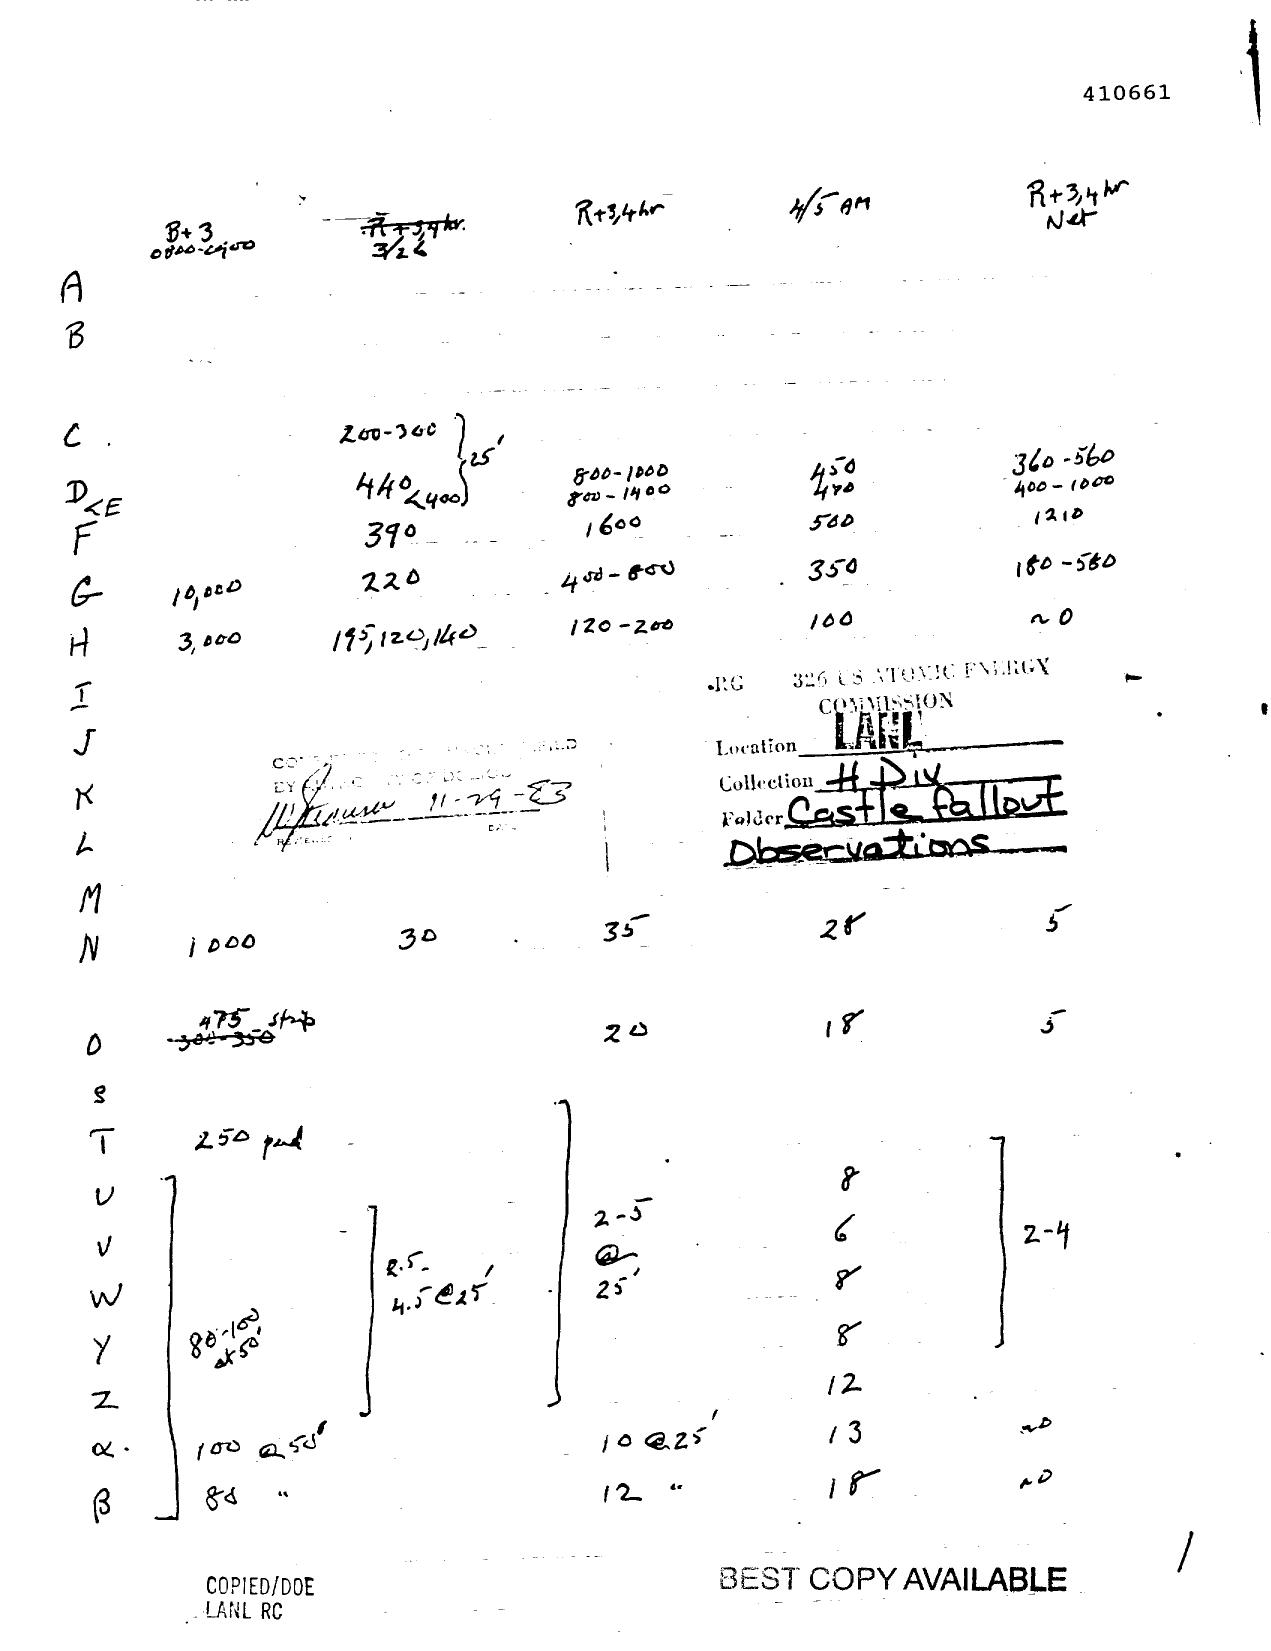 410661
B+3 R+3,4hr. R+3,4hr 4/5 AM R+3,4hr
0800-0900 3/26 Net
A
B
C . 200-300 } 25'
D 440 800-1000 450 360-560
<E <400 800-1400 470 400-1000
F 390 1600 500 1210
G 10,000 220 400-800 350 180-580
H 3,000 195,120,140 120-200 100 ~0
I
J
K
L
RG 326 US ATOMIC ENERGY
COMMISSION
Location LANL
Collection H Div
Folder Castle fallout
Observations
11-29-83
DATE
M
N 1000 30 35 28 5
475 strip
O 300-350 20 18 5
S
T 250
U 8
V 2-5 6 2-4
W 2.5- @ 8
4.5 @ 25' 25'
Y 80-100 8
at 50'
Z 12
α . 100 @ 50' 10 @ 25' 13 ~0
β 80 " 12 " 18 ~0
COPIED/DOE
LANL RC
BEST COPY AVAILABLE
1